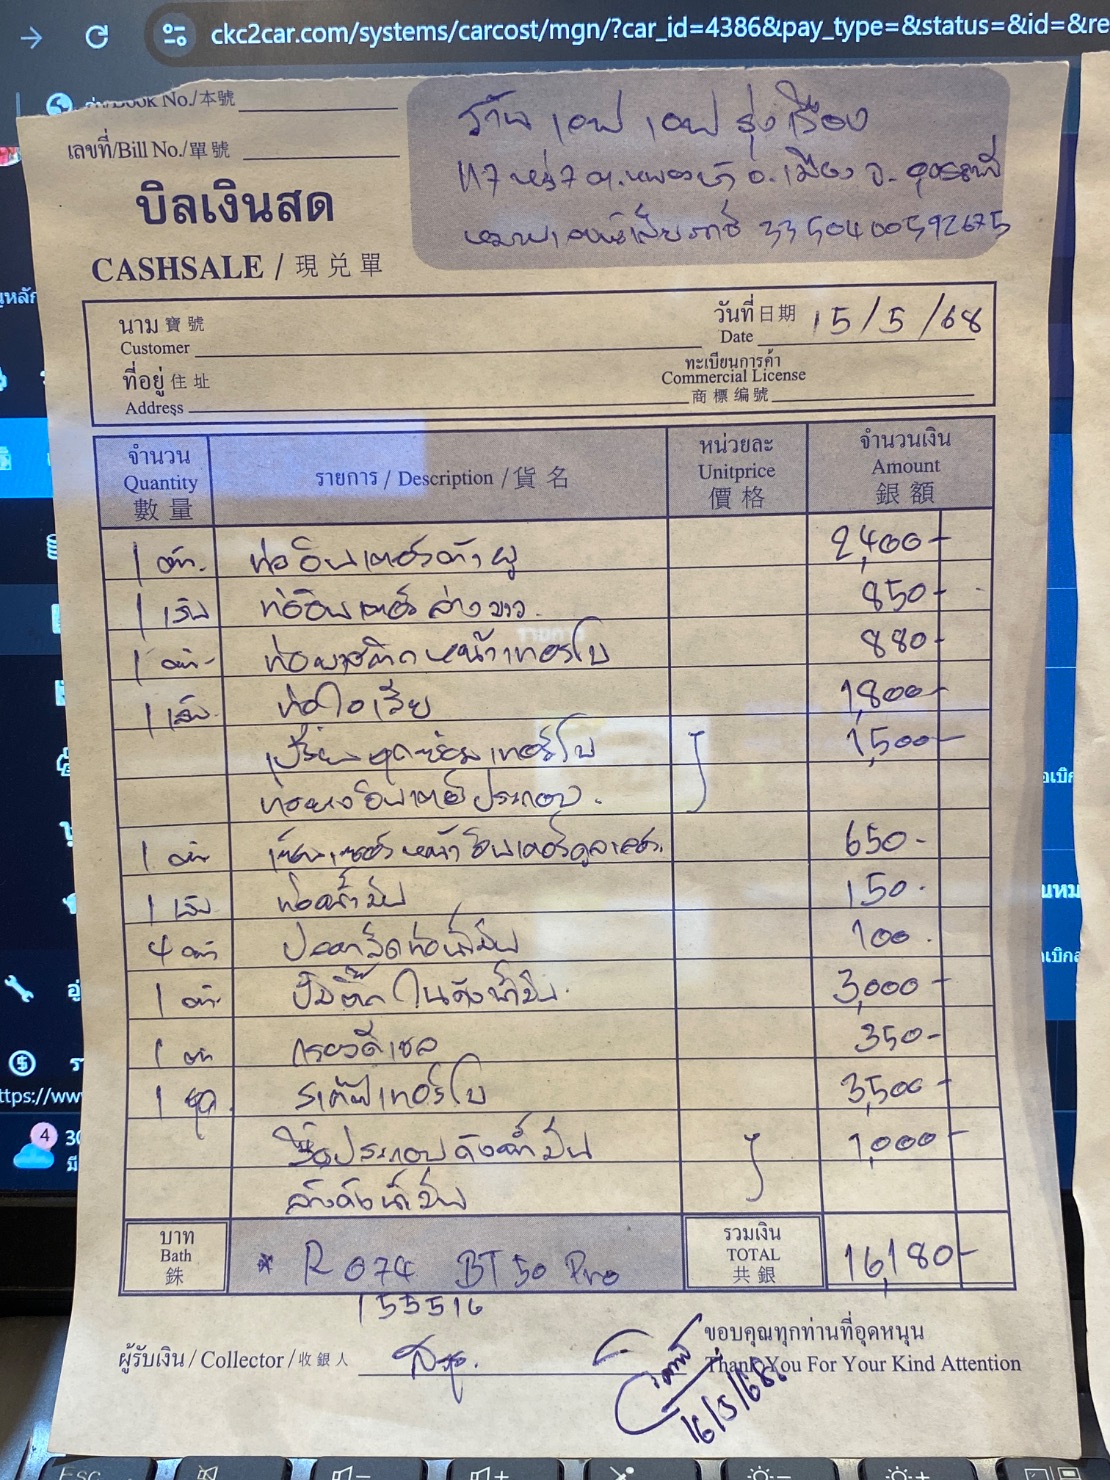 ckc2car.com/systems/carcost/mgn/?car_id=4386&pay_type=&status=&id=&re
Book No./本號
เลขที่/Bill No./單號
บิลเงินสด
CASHSALE / 現兑單
ร้าน เอฟ เอฟ รุ่งเรือง
117 หมู่ 7 ต.หนองบัว อ.เมือง จ.
หมายเลขผู้เสียภาษี 3350400592675
นาม 寶號
Customer
วันที่ 日期
Date 15/5/68
ที่อยู่ 住址
Address
ทะเบียนการค้า
Commercial License
商標编號
จำนวน
Quantity
數量
รายการ / Description / 貨名
หน่วยละ
Unitprice
價格
จำนวนเงิน
Amount
銀額
1 ตัว. ท่ออินเตอร์ 2,400-
1 เส้น ท่ออินเตอร์ล่างขวา. 850-
1 ตัว ท่อพาสติกหน้าเทอร์โบ 880-
1 เส้น ท่อไอเสีย 1,800-
เปลี่ยนชุดซ่อมเทอร์โบ 1,500-
อินเตอร์ประกอบ.
1 ตัว เซ็นเซอร์หน้าอินเตอร์คูลเลอร์. 650-
1 เส้น ท่อน้ำมัน 150.
4 ตัว ปลอกรัดท่อน้ำมัน 100.
1 ตัว. ปั๊มติ๊กในถังน้ำมัน. 3,000-
1 ตัว กรองดีเซล 350-
1 ชุด. เทอร์โบ 3,500-
ประกอบถังน้ำมัน 1,000-
ล้างถังน้ำมัน
บาท
Bath
銖
* R 074 BT 50 Pro
155516
รวมเงิน
TOTAL
共銀
16,180-
ผู้รับเงิน / Collector / 收銀人
ขอบคุณทุกท่านที่อุดหนุน
Thank You For Your Kind Attention
16/5/68